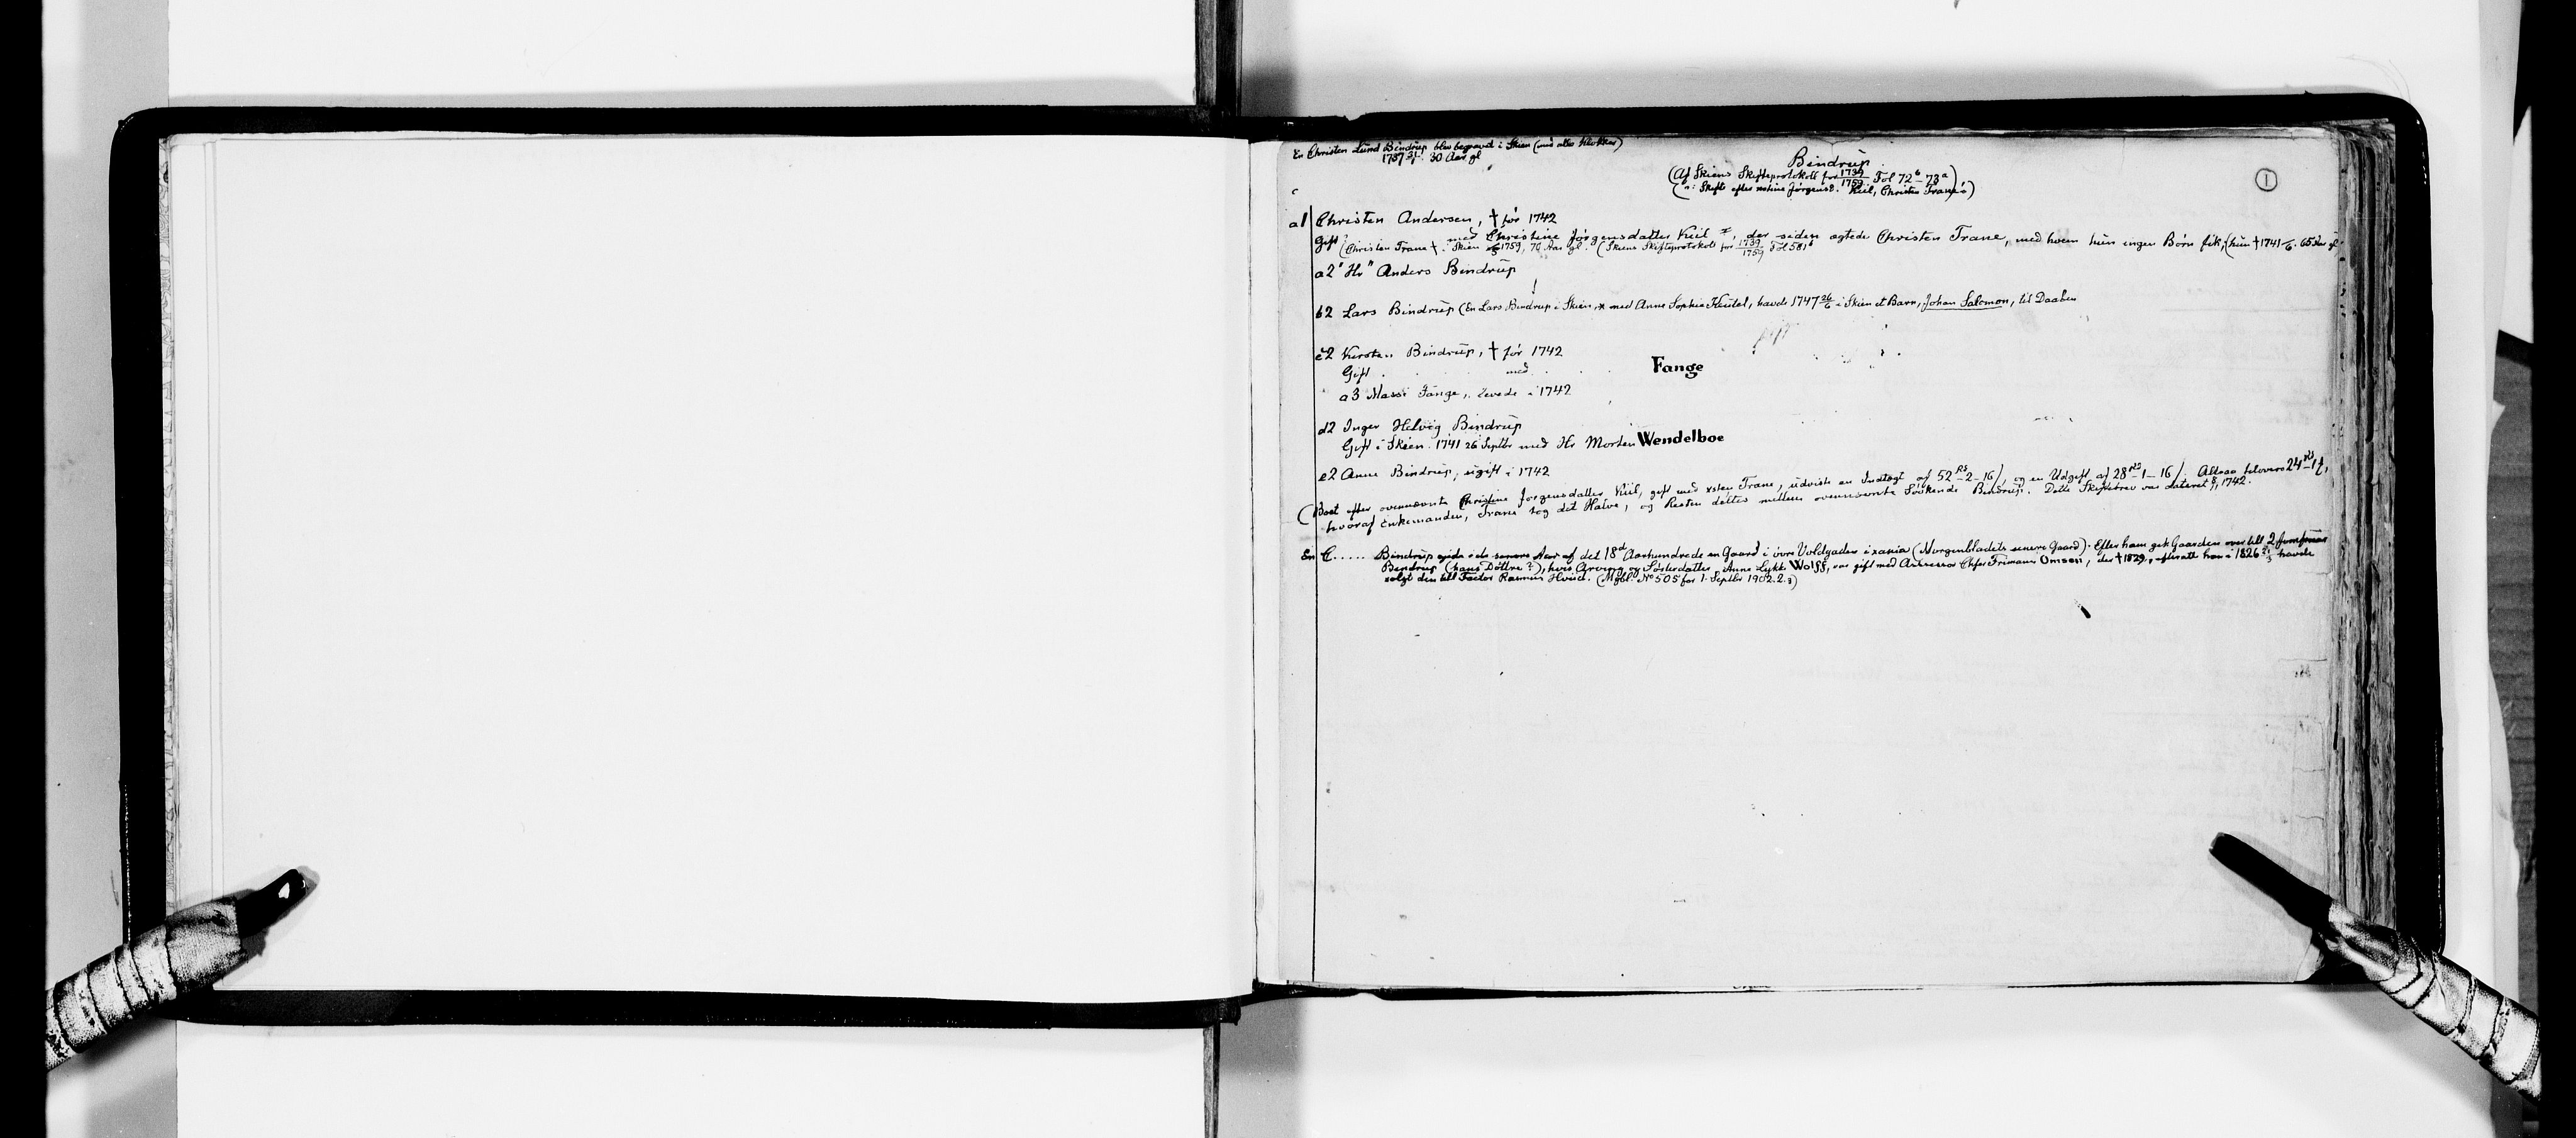 En Christen Lund Bindrup blev begravet i Skien (med alle Klokker)
1757 30 Aar gl
Bindrup
(Af Skiens Skifteprotokoll for 1739/1759 Fol 72b–73a)
(ɔ: Skifte efter Jørgensd. Kiil, Christen Tranes)
1
a1 Christen Andersen, † før 1742
Gift med Christine Jørgensdatter Kiil, der siden ægtede Christen Trane, med hvem hun ingen Børn fik, (hun † 1741 65 Aar gl.
(Christen Trane † Skien 1759, 70 Aar gl. (Skiens Skifteprotokoll for 1739/1759 Fol 581b
a2 "Hr" Anders Bindrup
b2 Lars Bindrup (En Lars Bindrup i Skien, * med Anne Sophie, havde 1747 26/6 i Skien et Barn, Johan Salomon, til Daaben
c2 Kirsten Bindrup, † før 1742
Gift med Fange
a3 Massi Fange, levede i 1742
d2 Inger Helvig Bindrup
Gift i Skien 1741 26 Septbr med Hr Morten Wendelboe
e2 Anne Bindrup, ugift i 1742
(Boet efter ovennævnte Christine Jørgensdatter Kiil, gift med xsten Trane, udviste en Indtægt af 52 Rd–2–16/, og en Udgift af 28 Rd–1–16/. Altsaa tilovers 24 Rd–1/,
hvoraf Enkemanden, Trane tog det Halve, og Resten deltes mellem ovennævnte Søskende Bindrup. Dette Skiftebrev var dateret 1742.
En C...... Bindrup ejede i de senere Aar af det 18d Aarhundrede en Gaard i øvre Voldgaden i xania (Morgenbladets senere Gaard). Efter ham gik Gaarden over till 2 Jomfruer
Bindrup (hans Døttre?), hvis Arving og Søsterdatter Anne Lykke Wolff, var gift med Assessor Omsen, der † 1829, efteratt han i 1826 havde
solgt den till Factor Rasmus Hviid. (Mgbl. No 505 for 1. Septbr 1902.2.3)